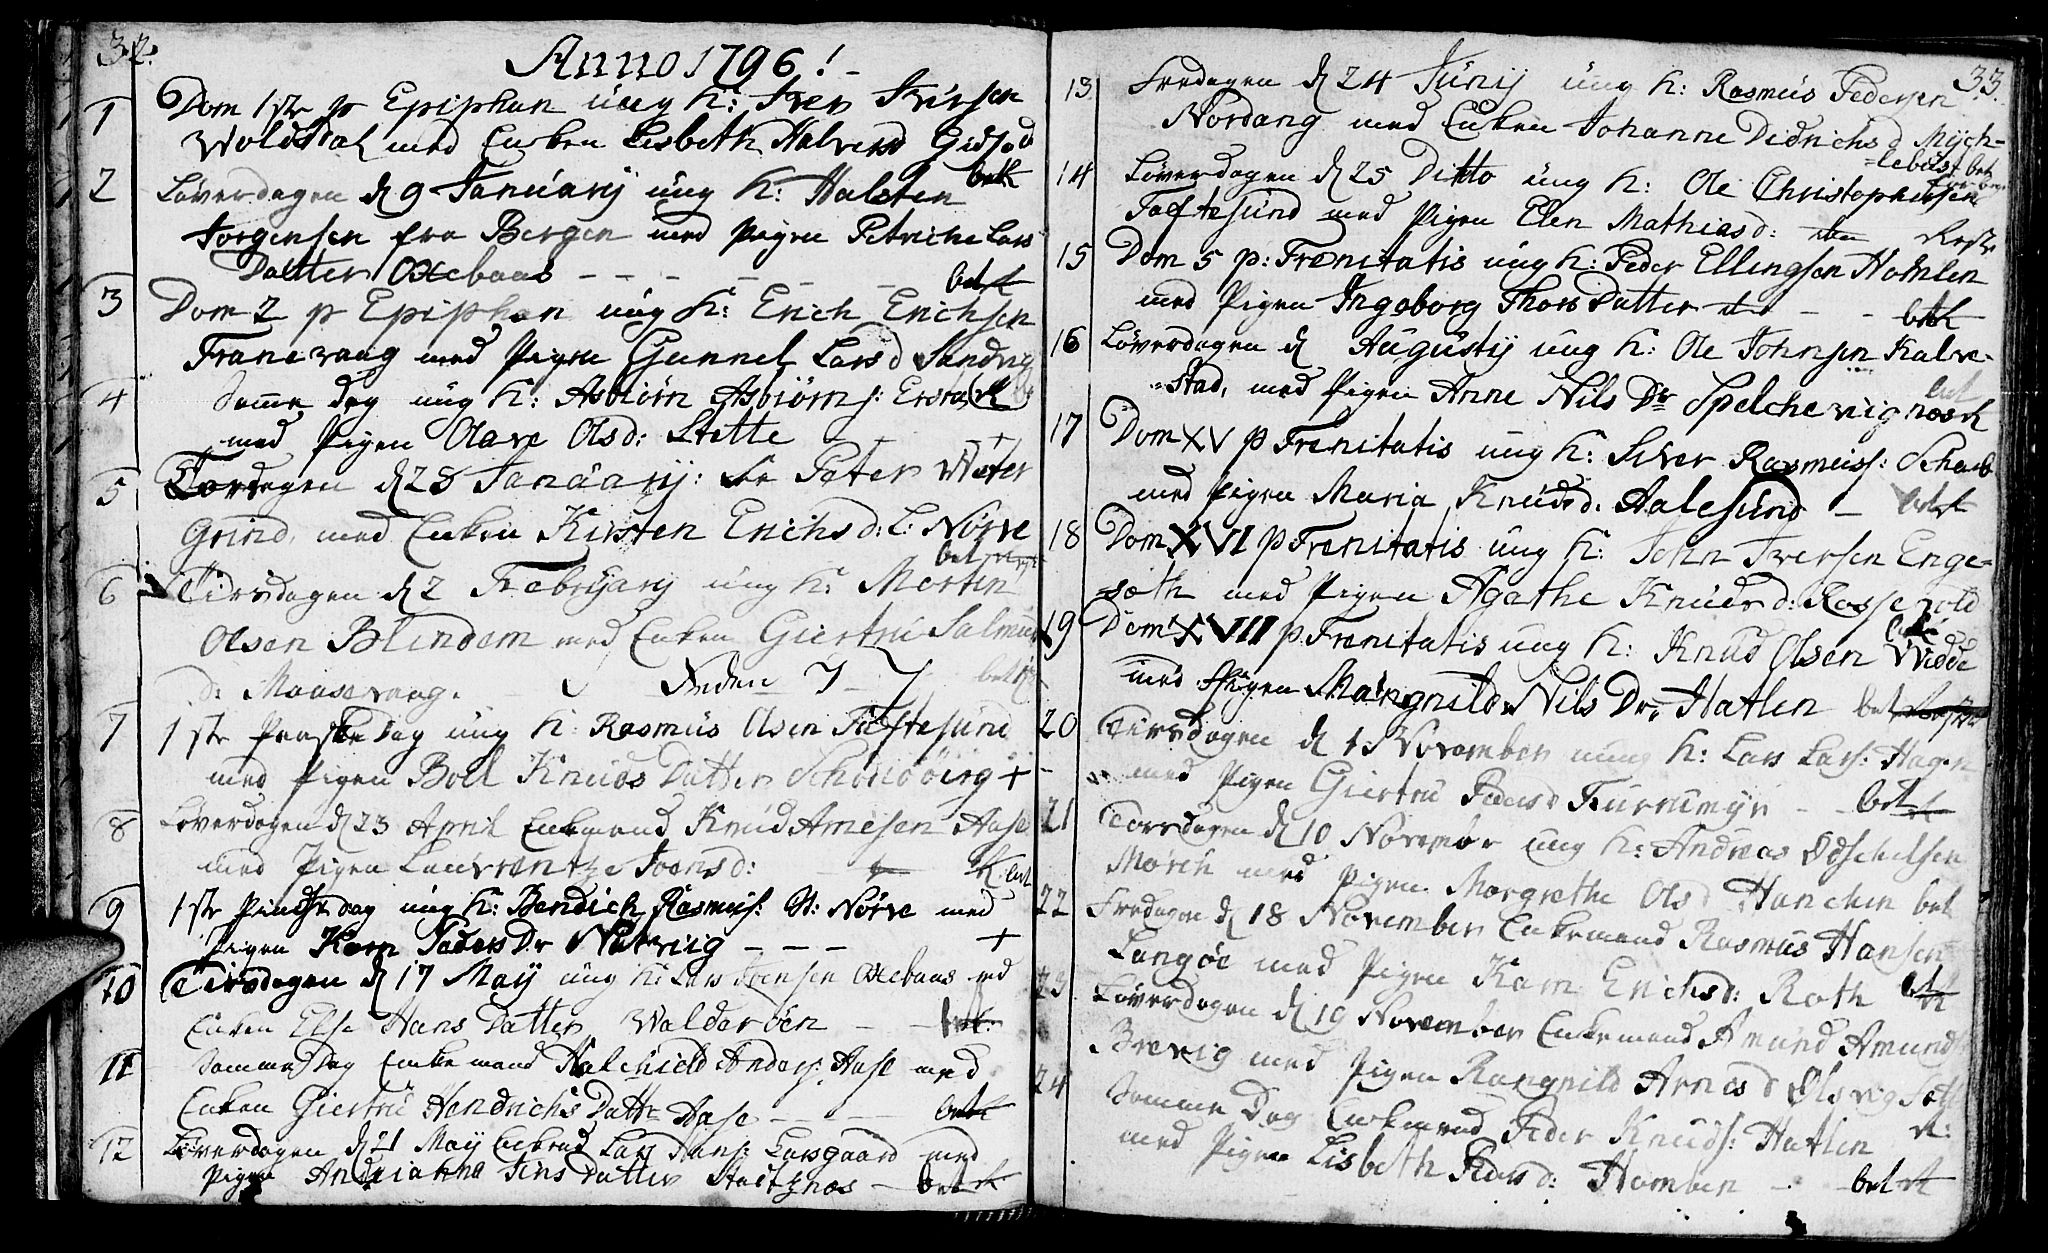 32.
Anno 1796!
1 Dom 1ste p Epiphan ung K: Iver Iversen
Woldsdal med Enken Lisbeth Halversd
betk
2 Løverdagen d 9 Januarij ung K: Halsten
Jorgensen fra Bergen med Pigen Petriche Lars
Datter Oxebaas - - - - - - betk
3 Dom 2 p Epiphan ung K: Erich Erichsen
Franevaag med Pigen Gunnel Larsd Sandvig
4 Samme dag ung K: Asbiørn Asbiørns:
med Pigen Olave Olsd: Slette - - +
5 Torsdagen d 28 Januarij: Sr Peter Wiger
Grind, med Enken Kirsten Erichsd: L: Nørve
bet
6 Tirsdagen d 2 Februarij ung K: Morten
Olsen Blindem med Enken Giertru Salmun
d: Maasevaag. bet
7 1ste Paaske Dag ung K: Rasmus Olsen Tæftesund
med Pigen Boel Knuds Datter +
8 Løverdagen d 23 April Enkemand Knud Arnesen Aase
med Pigen Laurentze Joensd:
9 1ste Pindse dag ung K: Bendich Rasmus: St: Nørve med
Pigen Karn Peders Dr - - - +
10 Tirsdagen d 17 Maij ung K: Lars Joensen Oxebaas md
Enken Else Hans Datter Walderöen - - bet:
11 Samme Dag Enkemand Halchield Anders: Aase med
Enken Giertru Hendrichs Dattr Aase - - - betk
12 Løverdagen d 21 Maij Lars Hans: Larsgaard med
Pigen Andrianna Jens Datter Stadtznæs - betk
33.
13 Fredagen d 24 Junij ung K: Rasmus Pedersen
Nordang med Enken Johanne Didrichsd Myck-
=lebust bet
14 Løverdagen d 25 Ditto ung K: Ole Christophersen
Tæftesund med Pigen Elen Mathiasd: Reste
15 Dom 5 p: Trenitatis ung K: Peder Ellingsen Homlen
med Pigen Ingeborg Thors Datter - - betk
16 Løverdagen d Augustij ung K: Ole Johnsen Kalve-
=stad, med Pigen Anne Nils Dr Spelchevig
bet
17 Dom XV p Trenitatis ung K: Siver Rasmuss:
med Pigen Maria Knudsd. Aalesund - betk
18 Dom XVI p Trenitatis ung K: John Iversen Enge-
=sæth med Pigen Agathe Knudsd:
19 Dom XVII p. Trenitatis ung K: Knud Olsen Widde
med Pigen Mangnild Nils Dr: Hatlen bet
20 Tirsdagen d 1 November ung K: Lars Lars: Hagen
med Pigen Giertru Pedersd Furremyr - - betk
21 Torsdagen d 10 November ung K: Andreas
Mørch med Pigen Margrethe Olsd Hanchen bet
22 Fredagen d 18 November Enkemand Rasmus Hansen
Langøe med Pigen Karn Erichsd: Roth betk
23 Løverdagen d 19 November Enkemand Amund Amunds
Brevig med Pigen Rangnild Arnesd
24 Samme Dag Enkemand Peder Knuds: Hatlen
med Pigen Lisbeth Pedersd: Homben - - betk